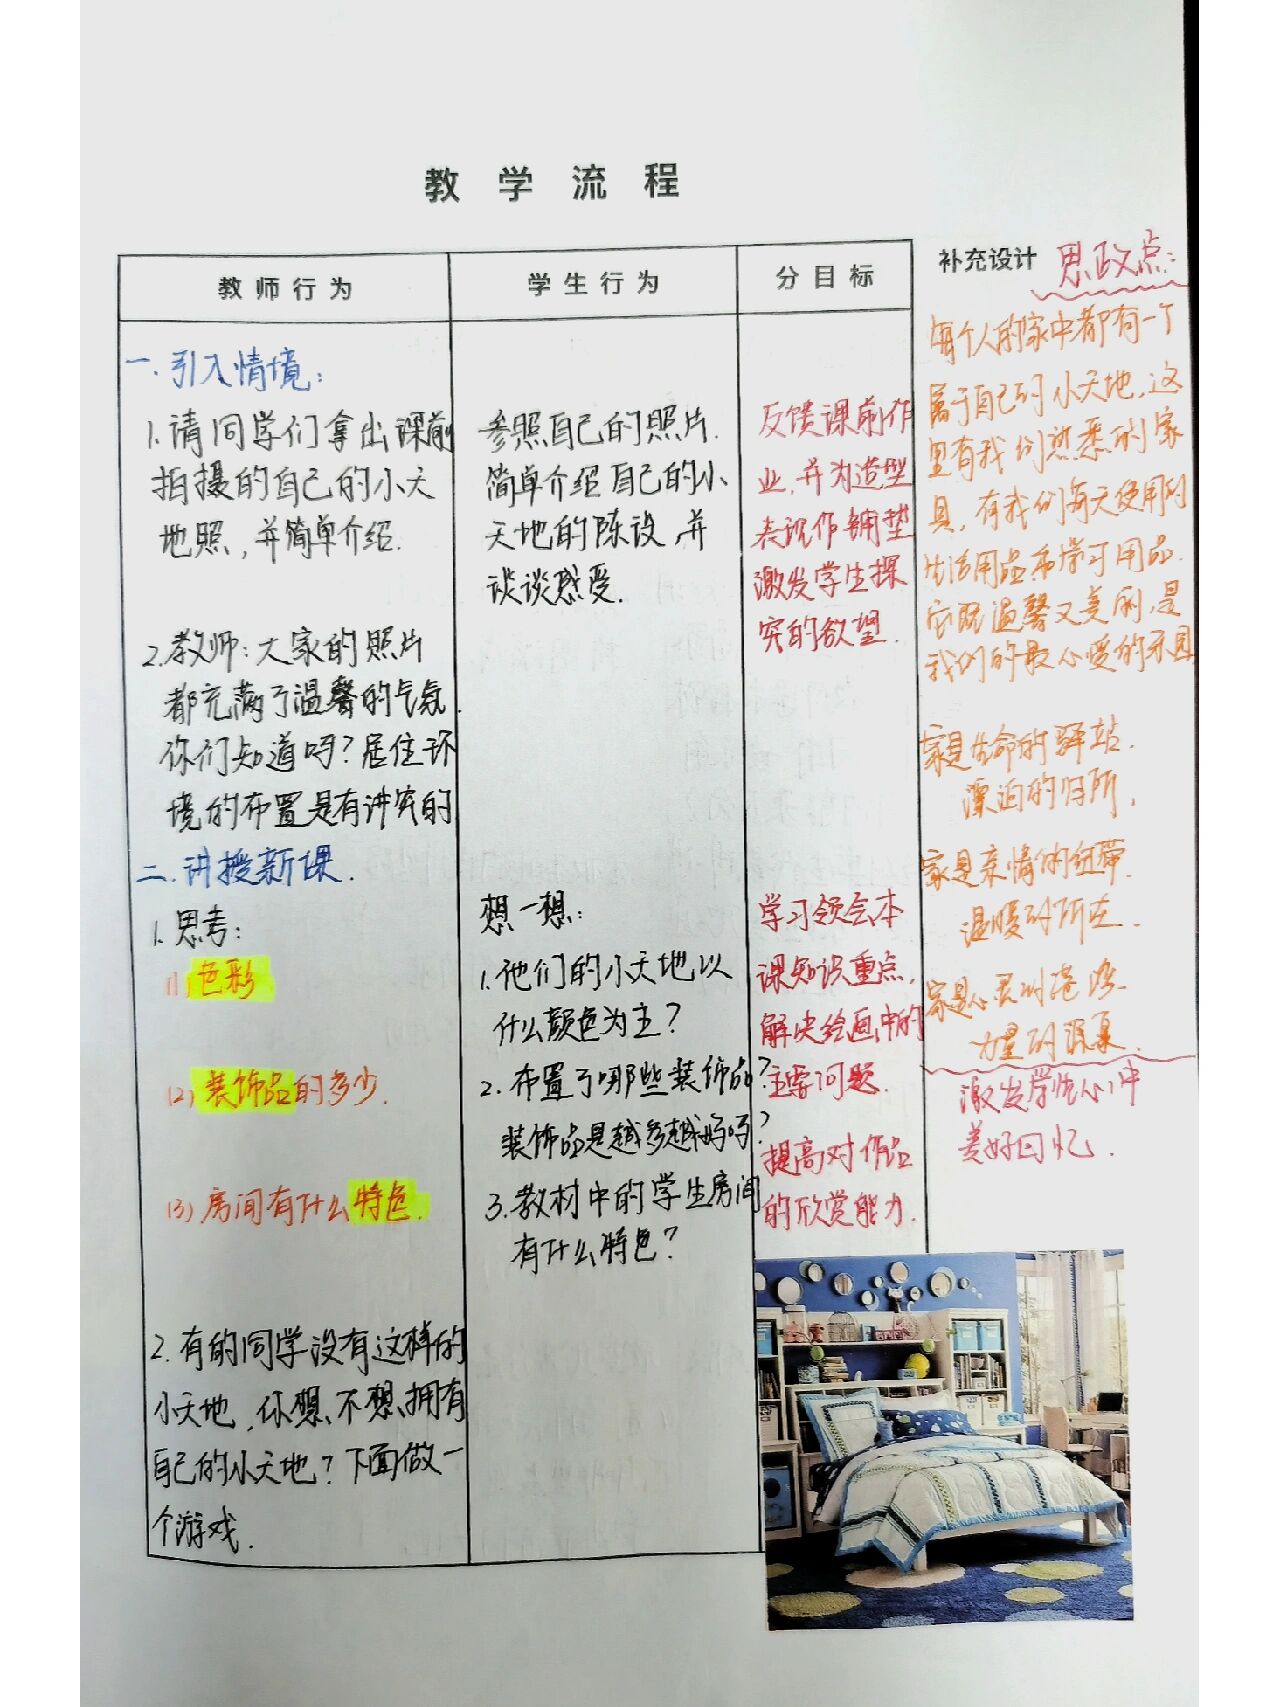 教学流程
教师行为
学生行为
分目标
补充设计 思政点:
一.引入情境:
1.请同学们拿出课前
拍摄的自己的小天
地照,并简单介绍.
2.教师:大家的照片
都充满了温馨的气氛.
你们知道吗?居住环
境的布置是有讲究的
二.讲授新课.
1.思考:
(1)色彩
(2)装饰品的多少.
(3)房间有什么特色.
2.有的同学没有这样的
小天地,你想、不想、拥有
自己的小天地?下面做一
个游戏.
参照自己的照片.
简单介绍自己的小
天地的陈设,并
谈谈感受.
想一想:
1.他们的小天地以
什么颜色为主?
2.布置了哪些装饰品?
装饰品是越多越好吗?
3.教材中的学生房间
有什么特色?
反馈课前作
业,并为造型
表现作铺垫
激发学生探
究的欲望.
学习领会本
课知识重点,
解决绘画中的
主要问题.
提高对作品
的欣赏能力.
每个人的家中都有一个
属于自己的小天地,这
里有我们熟悉的家
具,有我们每天使用的
生活用品和学习用品.
它既温馨又美丽,是
我们的最心爱的乐园
家是生命的驿站.
漂泊的归所,
家是亲情的纽带.
温暖的所在.
家是心灵的港湾.
力量的源泉.
激发学生心中
美好回忆.